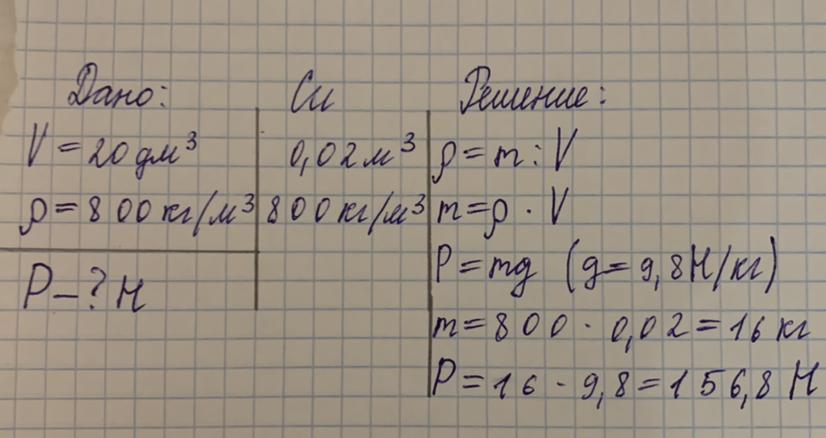 Дано:
V = 20 дм³
ρ = 800 кг/м³
P – ? Н
Си
0,02 м³
800 кг/м³
Решение:
ρ = m : V
m = ρ · V
P = mg (g = 9,8 Н/кг)
m = 800 · 0,02 = 16 кг
P = 16 · 9,8 = 156,8 Н